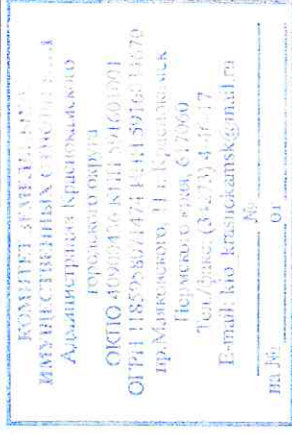 КОМИТЕТ ЗЕМЕЛЬНЫХ И
ИМУЩЕСТВЕННЫХ ОТНОШЕНИЙ
Администрации Краснокамского
городского округа
ОКПО 40902436 КПП 591601001
ОГРН ИНН
пр.Маяковского, 11, г.Краснокамск
Пермского края, 617060
Тел./факс (34273)
E-mail: kio_krasnokamsk@gmail.ru
№
на № от